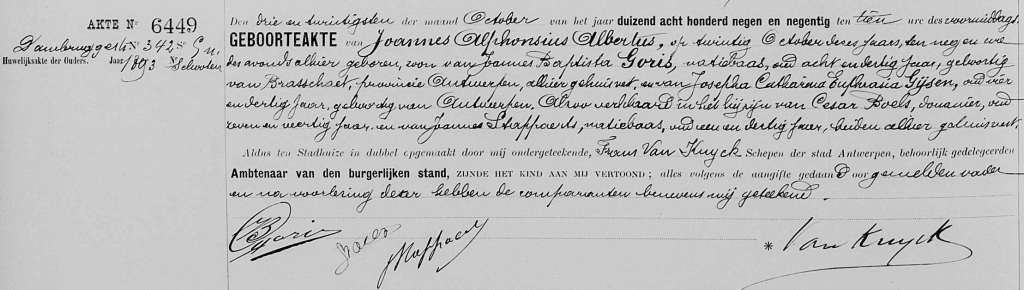 AKTE Nº 6449
Dambruggestr 342
Huwelijksakte der Ouders. Jaar 1893 Nº Schooten
Den drie en twintigsten der maand October van het jaar duizend acht honderd negen en negentig ten tien ure des voormiddags.
GEBOORTEAKTE van Joannes Alphonsius Albertus, op twintig October dezes jaars, ten negen ure
des avonds alhier geboren, zoon van Joannes Baptista Goris, natiebaas, oud acht en dertig jaar, geboortig
van Brasschaet, provincie Antwerpen, alhier gehuisvest, en van Josepha Catharina Euphrasia Gijsen, oud vier
en dertig jaar, geboortig van Antwerpen. Alzoo verklaard in het bijzijn van Cesar Boels, douanier, oud
zeven en veertig jaar, en van Joannes Stappaerts, natiebaas, oud een en dertig jaar, beiden alhier gehuisvest.
Aldus ten Stadhuize in dubbel opgemaakt door mij ondergeteekende, Frans Van Kuyck Schepen der stad Antwerpen, behoorlijk gedelegeerden
Ambtenaar van den burgerlijken stand, ZIJNDE HET KIND AAN MIJ VERTOOND; alles volgens de aangifte gedaan door gemelden vader
en na voorlezing dezer hebben de comparanten benevens mij geteekend.
Goris
* Van Kuyck